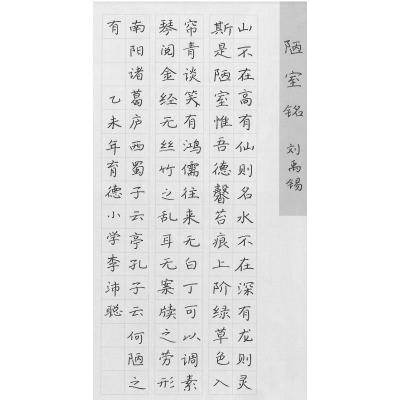 陋室铭 刘禹锡
山不在高有仙则名水不在深有龙则灵
斯是陋室惟吾德馨苔痕上阶绿草色入
帘青谈笑有鸿儒往来无白丁可以调素
琴阅金经无丝竹之乱耳无案牍之劳形
南阳诸葛庐西蜀子云亭孔子云 何陋之
有 乙未年育德小学李沛聪